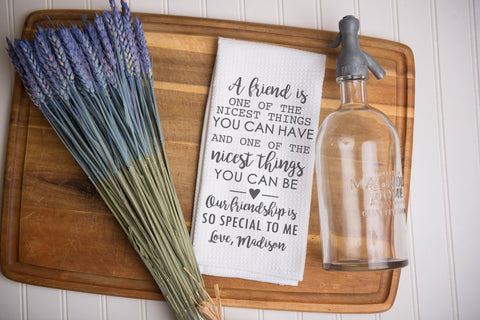 A friend is
ONE OF THE
NICEST THINGS
YOU CAN HAVE
AND ONE OF THE
nicest things
YOU CAN BE
Our friendship is
SO SPECIAL TO ME
Love, Madison